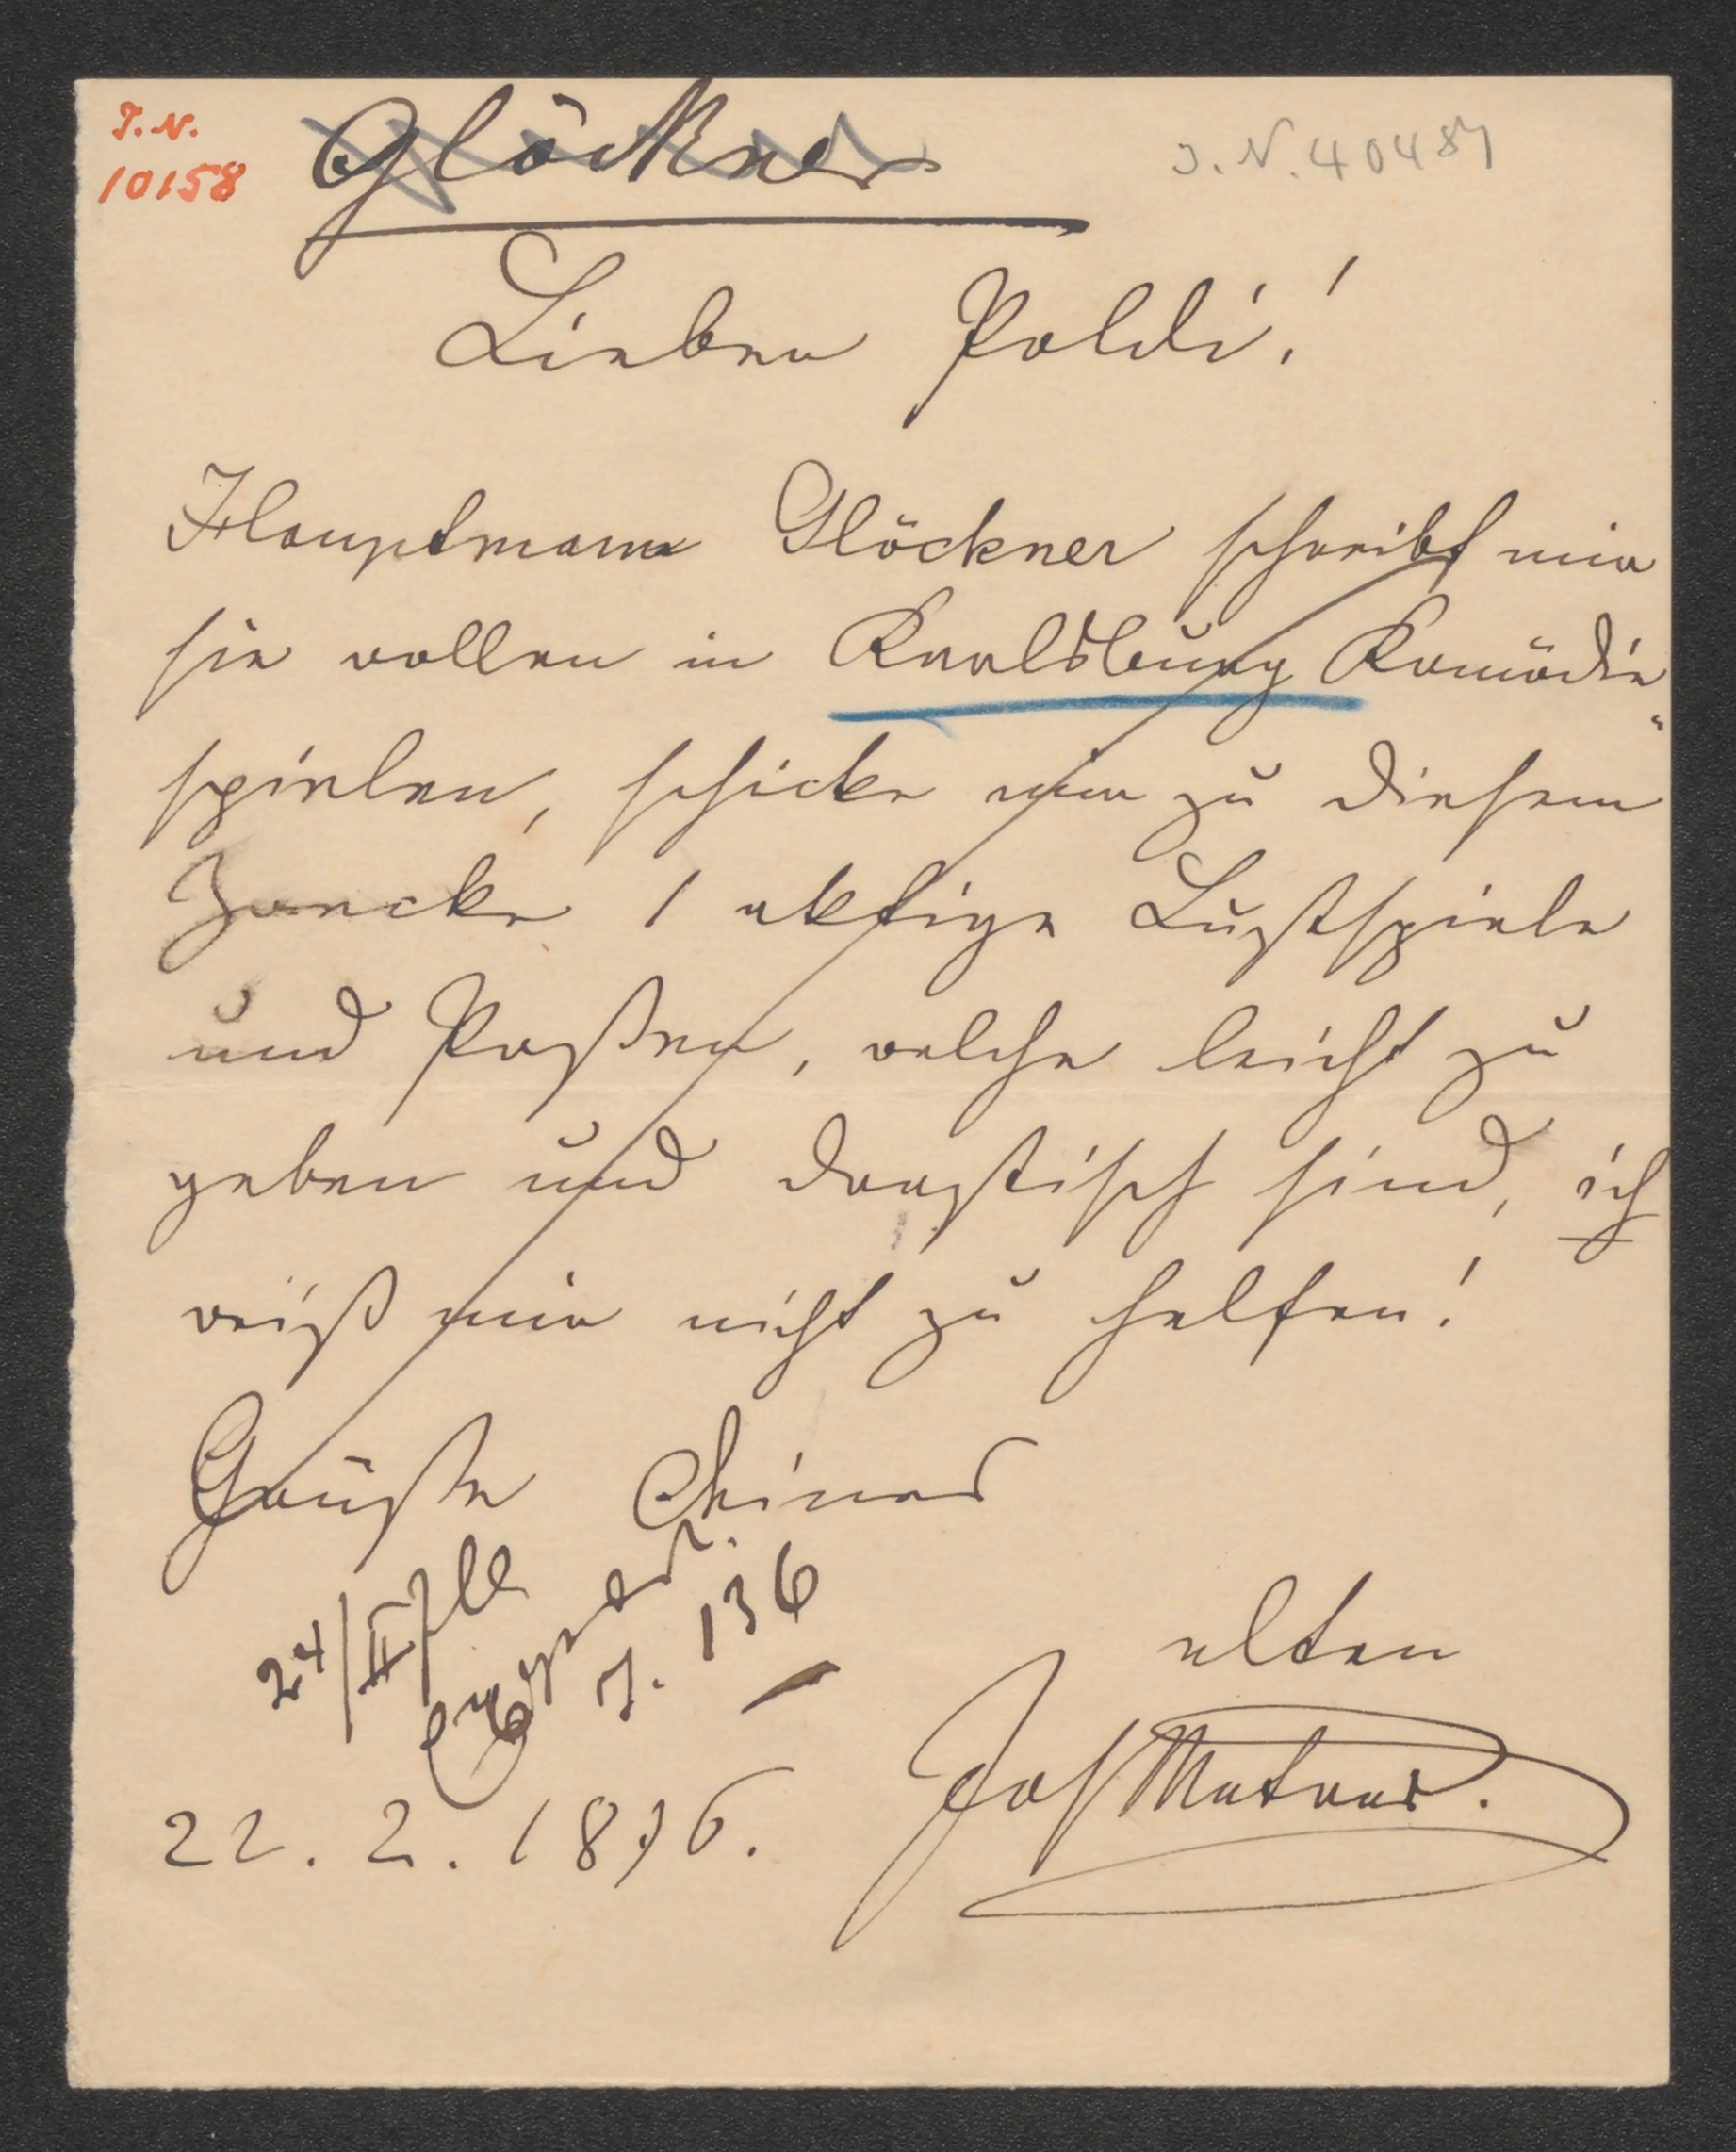 I. N.
10158
Glöckner
I. N. 40487
Lieber Poldi!
Hauptmann Glöckner schreibt mir
sie wollen in Karlsburg Komödie
spielen, schicke mir zu diesem
Zwecke 1 aktige Lustspiele
und Poßen, welche leicht zu
geben und drastisch sind, ich
weiß mir nicht zu helfen!
Grüße Deines
24/II
J. 136
alten
Jos Matras.
22. 2. 1876.